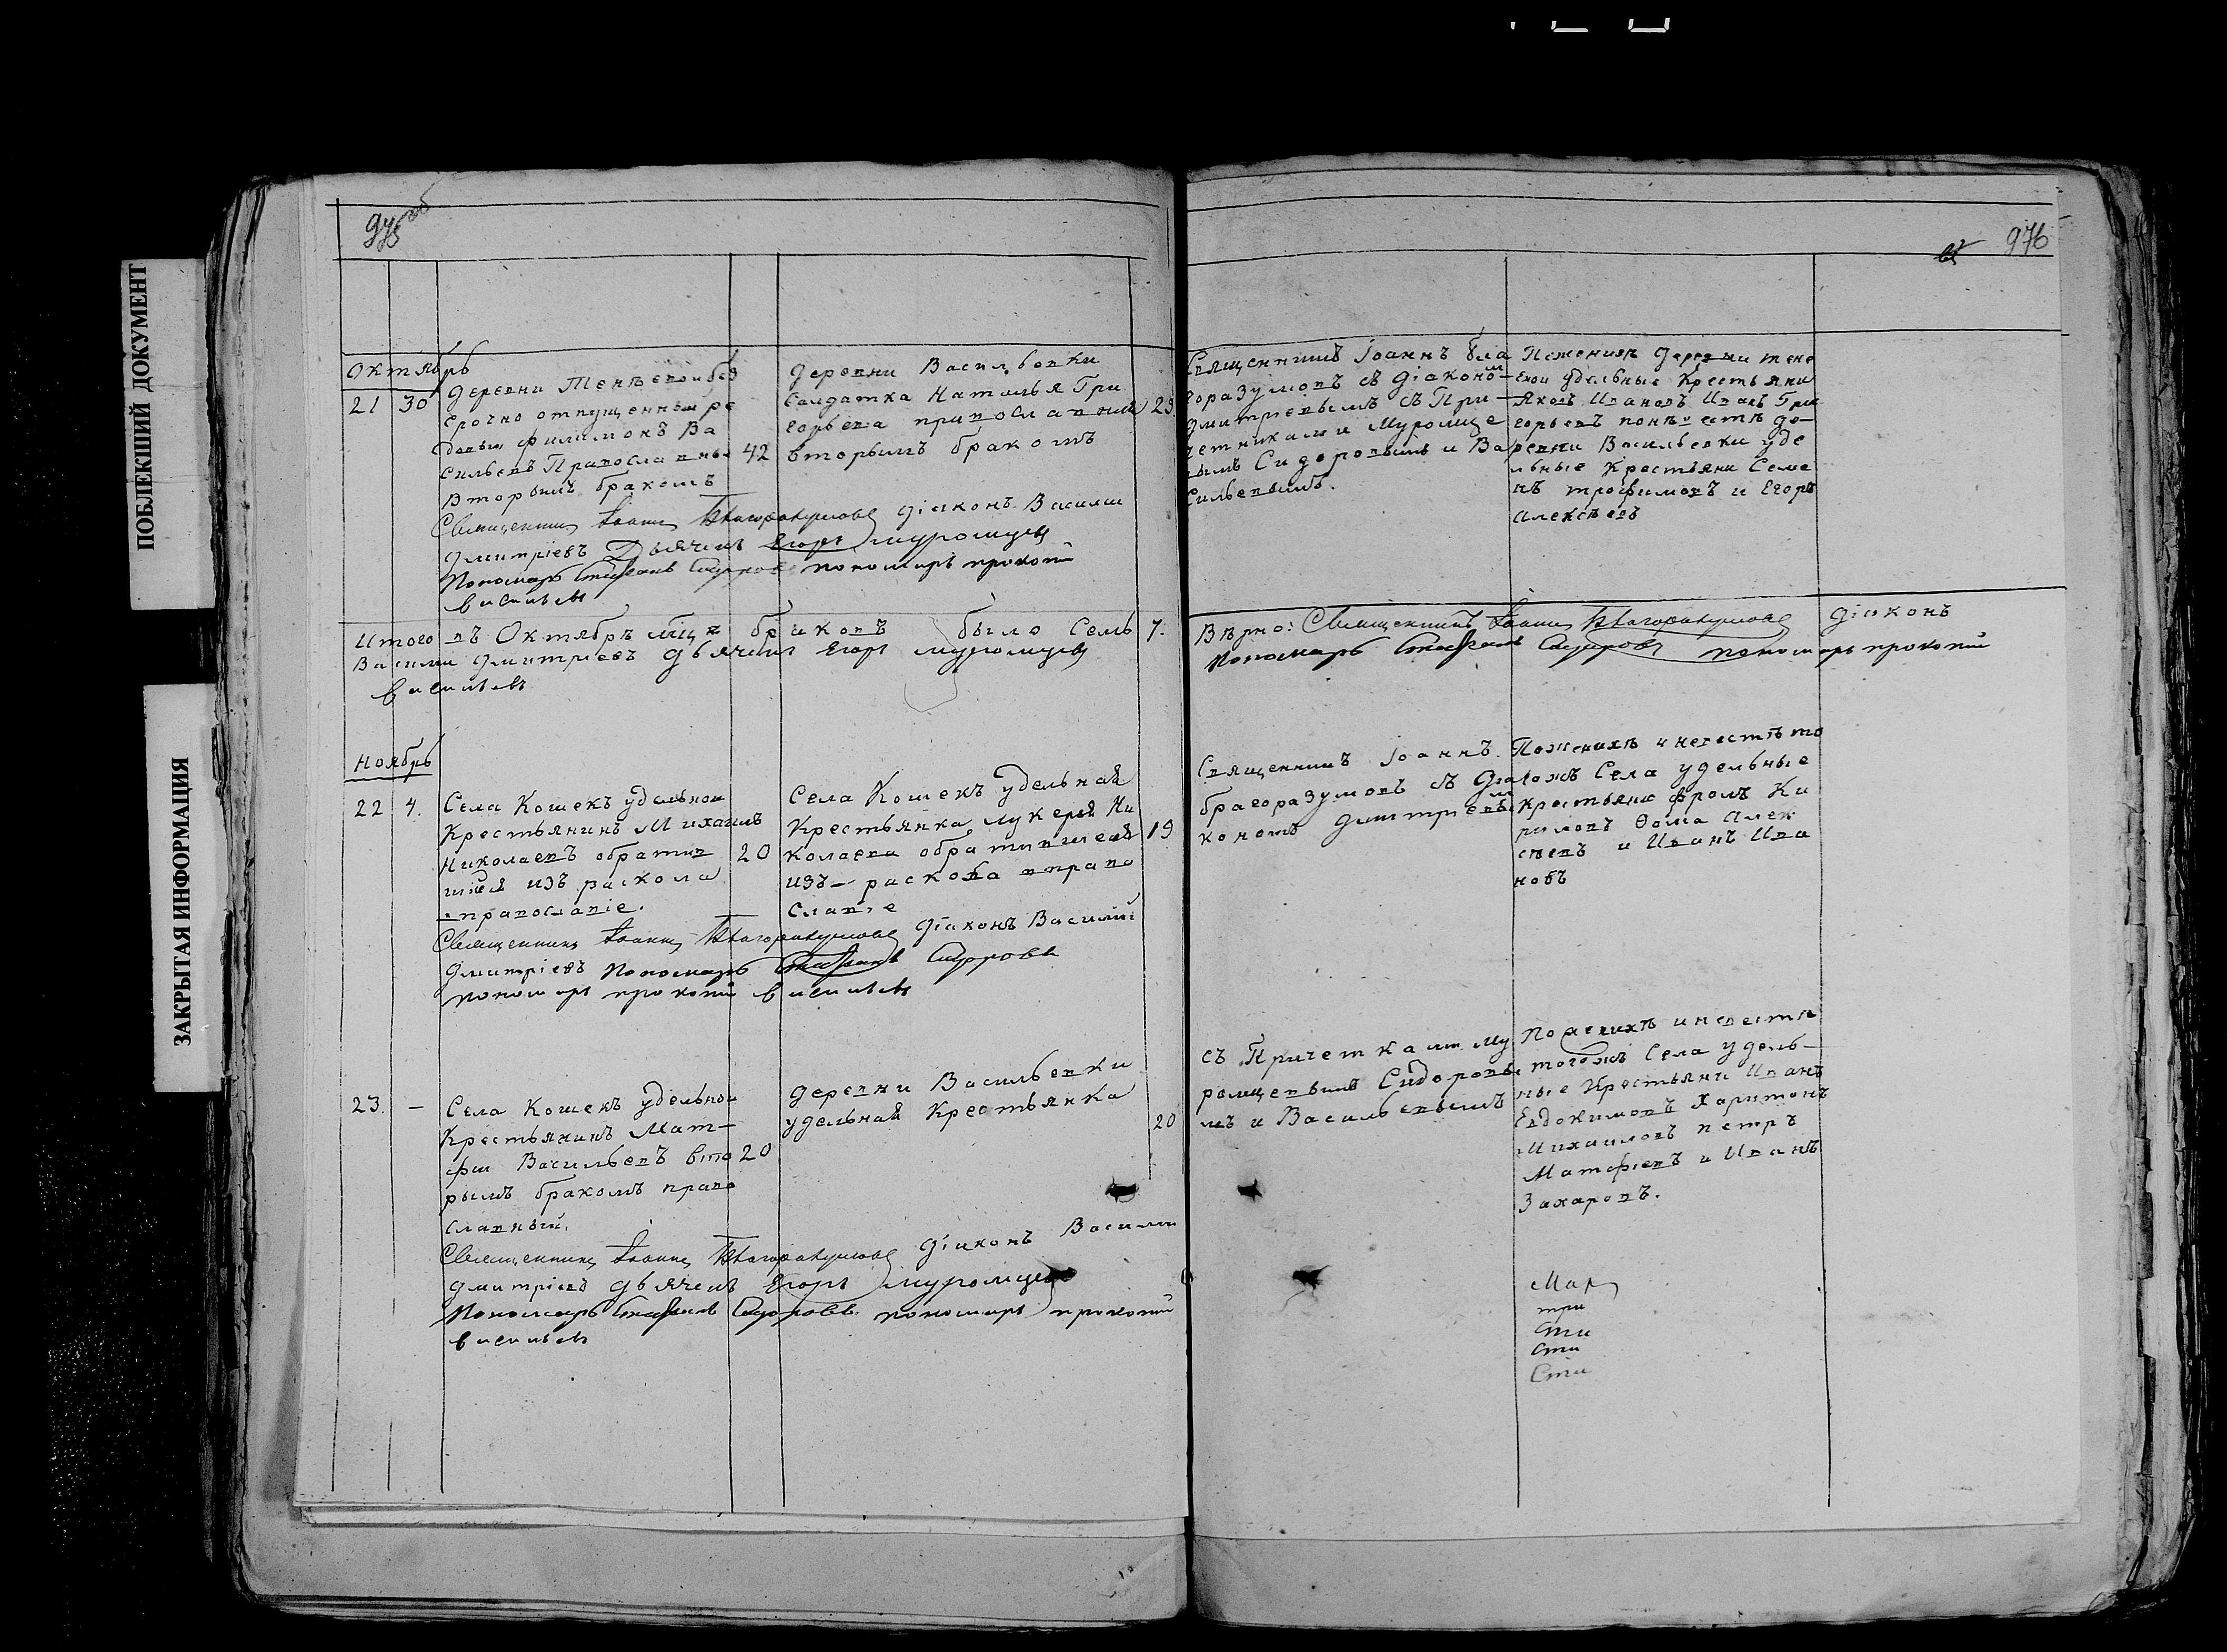 975 об
976
Октябрь
21 30
деревни Тенеевои без
срочно отпущенныи ре
довыи Филимонъ Ва
сильевъ Православныи
вторымъ бракомъ
42
деревни Васильевки
Салдатка Наталья Гри
горьева православная
вторымъ бракомъ
29
Священникъ Іоаннъ Бла
горазумовъ съ діакономъ
Дмитріевымъ съ При-
четниками Муромце
вымъ Сидоровымъ и Ва
сильевымъ.
Поженихѣ деревни Тене
евои удельные Крестьяни
Яковъ Ивановъ Иванъ Гри
горьевъ поневестѣ де-
ревни Васильевки уде
льные Крестьяни Семе
нъ Трофимовъ и Егоръ
Алексѣевъ
Священникъ Іоаннъ Благоразумовъ діаконъ Василии
Дмитріевъ Дьячекъ Егоръ Муромцевъ
Пономарь Стефанъ Сидоровъ пономарь прокопій
васильевъ
Итого въ Октябрѣ мцѣ браковъ было Семь 7.
Василии Дмитріевъ дьячекъ Егоръ Муромцевъ
васильевъ
Вѣрно: Священникъ Іоаннъ Благоразумовъ діаконъ
Пономарь Стефанъ Сидоровъ пономарь прокопій
Ноябрь
22 4.
Села Кошекъ удельнои
Крестьянинъ Михаилъ
Николаевъ обратив
шіися изъ раскола
вправославіе.
20
Села Кошекъ удельная
Крестьянка Лукерья Ни
колаева обратившеяся
изъ раскола вправо
славіе
19
Священникъ Іоаннъ
благоразумовъ съ діа
кономъ Дмитріевымъ
Поженихѣ и невестѣ то
гожъ Села удельные
Крестьяни Фролъ Ки
риловъ Ѳома Алек
сѣевъ и Иванъ Ива
новъ
Священникъ Іоаннъ Благоразумовъ діаконъ Василій
Дмитріевъ Пономарь Стефанъ Сидоровъ
пономарь прокопій васильевъ
23. -
Села Кошекъ удельнои
Крестьянинъ Мат-
фіи Васильевъ вто
рымъ бракомъ право
славный.
20
деревни Васильевки
удельная Крестьянка
20
съ Причетками Му
ромцевымъ Сидоровы
мъ и Васильевымъ
Поженихѣ и невестѣ
тогожъ Села удель-
ные Крестьяни Иванъ
Евдокимовъ Харитонъ
Михаиловъ петръ
Матфіевъ и Иванъ
Захаровъ.
Священникъ Іоаннъ Благоразумовъ діаконъ Василии
Дмитріевъ дьячекъ Егоръ Муромцевъ
Пономарь Стефанъ Сидоровъ пономарь прокопій
васильевъ
три
Сти
Сти
Сти
ПОБЛЕКШИЙ ДОКУМЕНТ
ЗАКРЫТАЯ ИНФОРМАЦИЯ